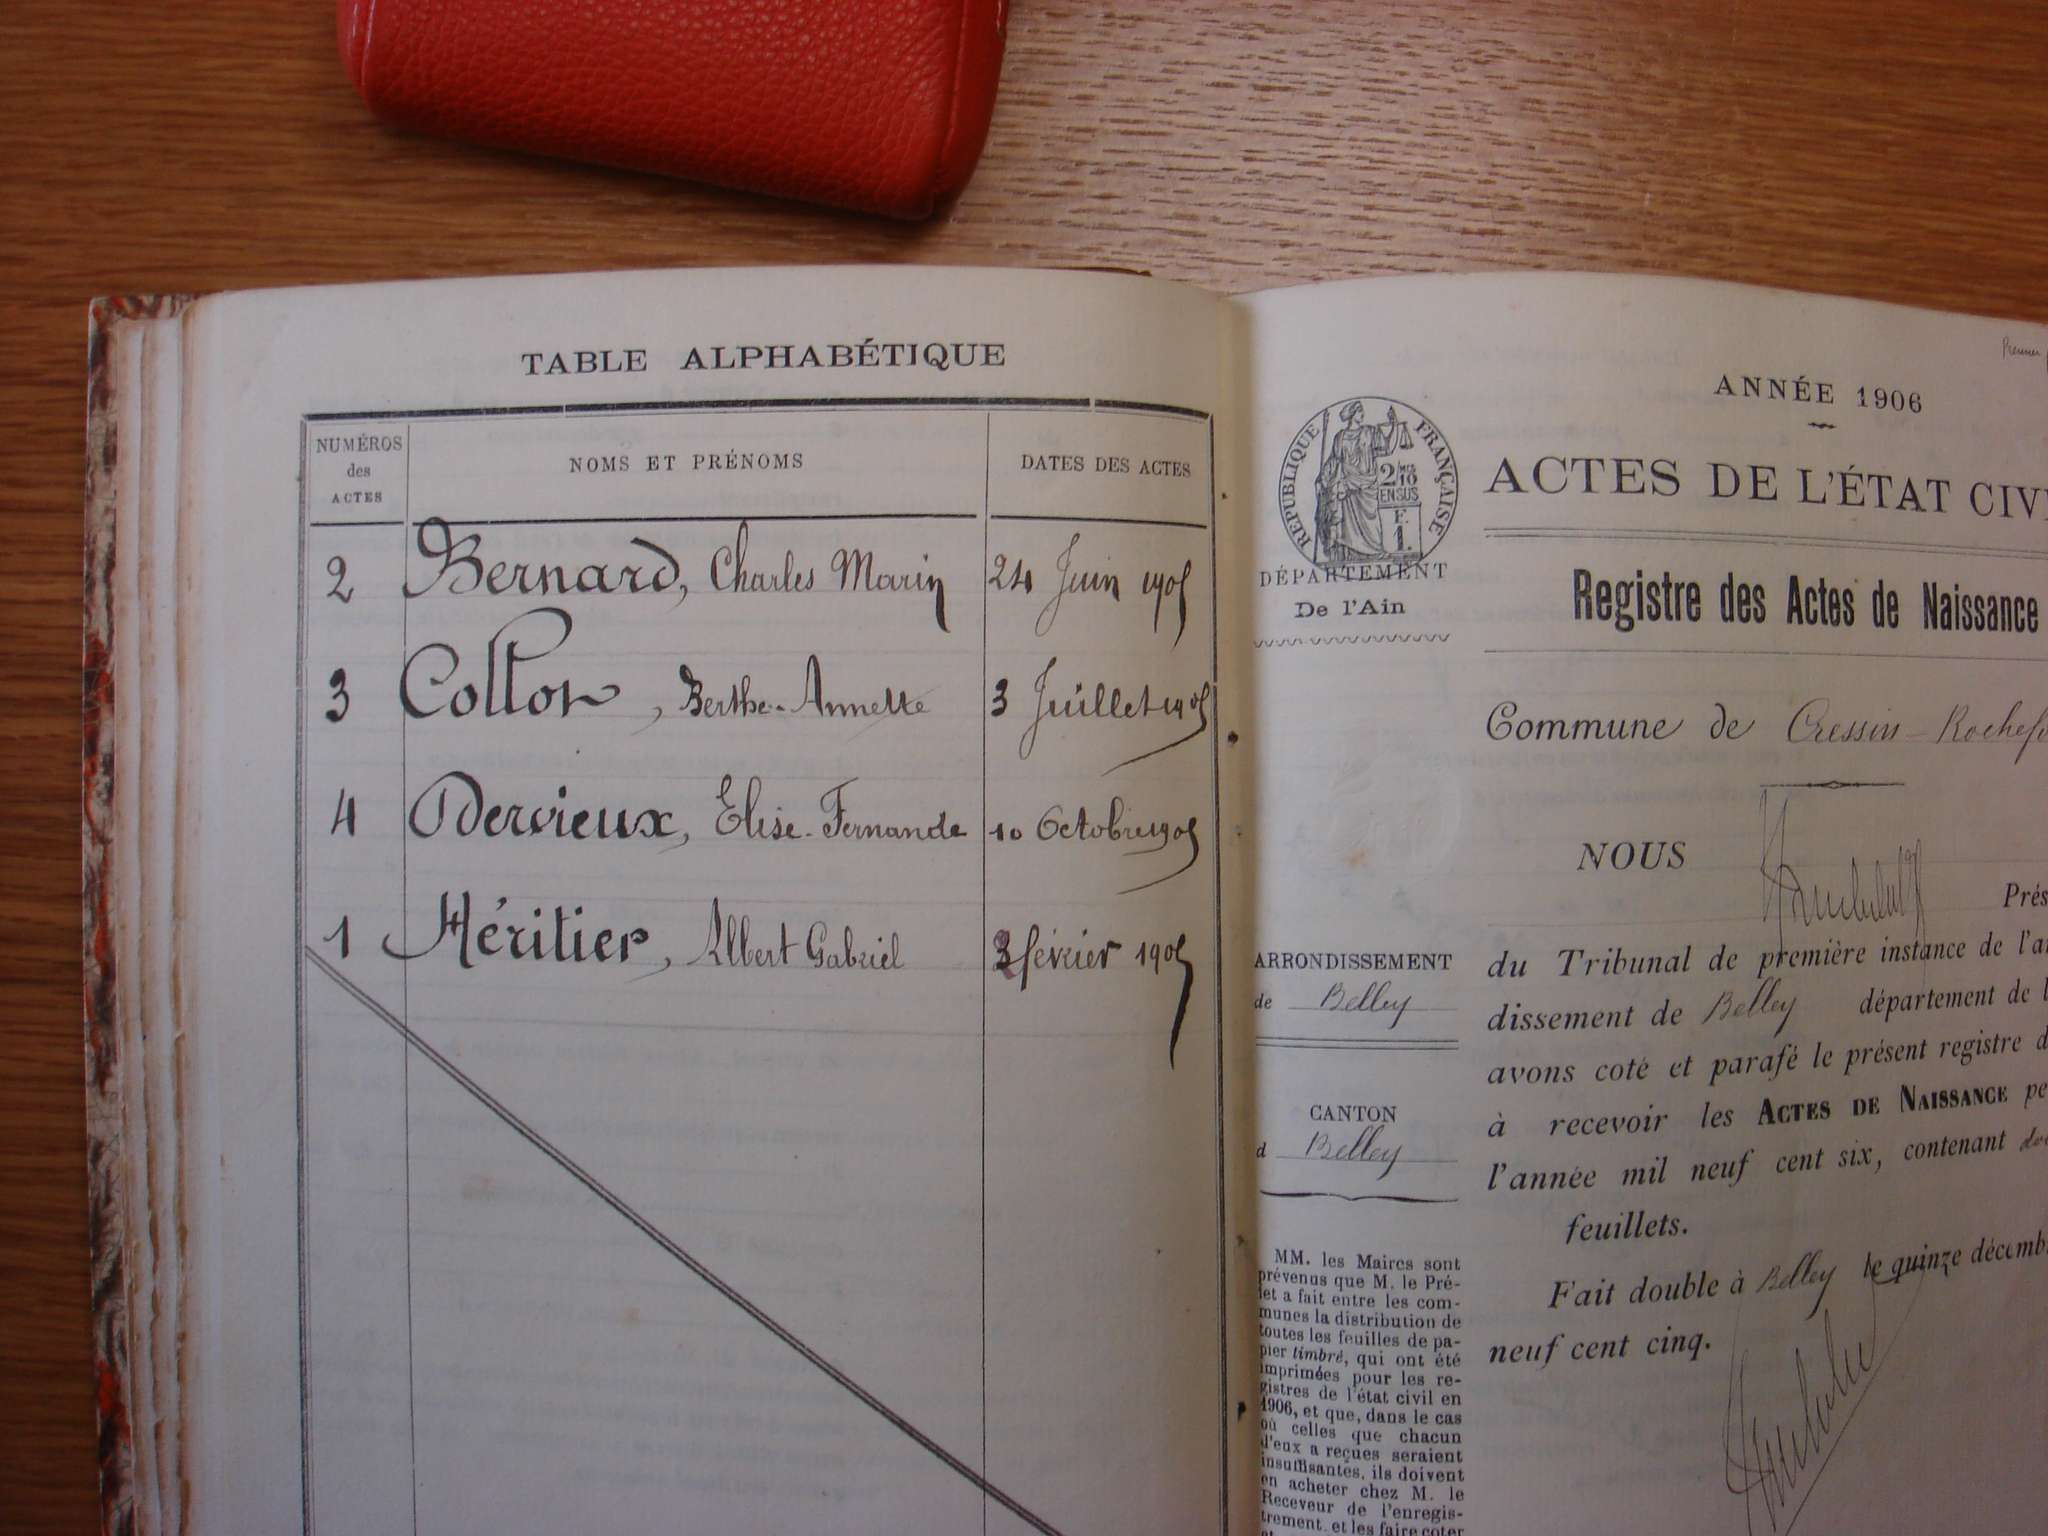 TABLE ALPHABÉTIQUE
NUMÉROS des ACTES NOMS ET PRÉNOMS DATES DES ACTES
2 Bernard, Charles Marin 24 Juin 1905
3 Collon, Berthe-Annette 3 Juillet 1905
4 Dervieux, Elise-Fernande 10 Octobre 1905
1 Héritier, Albert Gabriel 3 février 1905
Premier
ANNÉE 1906
RÉPUBLIQUE FRANÇAISE
2/10
EN SUS
F.
1.
ACTES DE L'ÉTAT CIV
DÉPARTEMENT
De l'Ain
Registre des Actes de Naissance
Commune de Cressin-Rochefo
NOUS
Prés
ARRONDISSEMENT
de Belley
CANTON
d Belley
du Tribunal de première instance de l'ar
dissement de Belley département de l
avons coté et parafé le présent registre d
à recevoir les ACTES DE NAISSANCE pe
l'année mil neuf cent six, contenant
feuillets.
Fait double à Belley le quinze décemb
neuf cent cinq.
MM. les Maires sont
prévenus que M. le Pré-
fet a fait entre les com-
munes la distribution de
toutes les feuilles de pa-
pier timbré, qui ont été
imprimées pour les re-
gistres de l'état civil en
1906, et que, dans le cas
où celles que chacun
d'eux a reçues seraient
insuffisantes, ils doivent
en acheter chez M. le
Receveur de l'enregis-
trement, et les faire coter